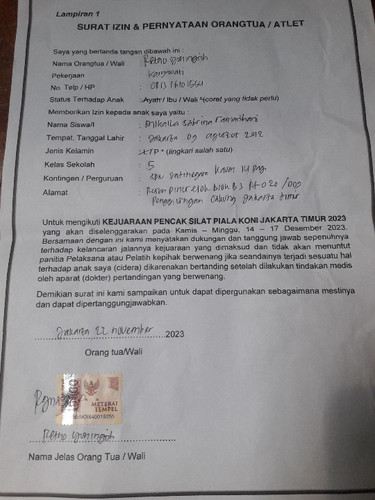 Lampiran 1
SURAT IZIN & PERNYATAAN ORANGTUA / ATLET
Saya yang bertanda tangan dibawah ini :
Nama Orangtua / Wali : Retno
Pekerjaan : karyawati
No. Telp / HP :
Status Terhadap Anak : Ayah / Ibu / Wali *(coret yang tidak perlu)
Memberikan Izin kepada anak saya yaitu :
Nama Siswa/i : Sabrina Ramadhani
Tempat, Tanggal Lahir : Jakarta 09 agustus 2012
Jenis Kelamin : L/P * (lingkari salah satu)
Kelas Sekolah : 5
Kontingen / Perguruan :
Alamat : Rusun Pinus elok blok B3
Cakung Jakarta timur
Untuk mengikuti KEJUARAAN PENCAK SILAT PIALA KONI JAKARTA TIMUR 2023
yang akan diselenggarakan pada Kamis – Minggu, 14 – 17 Desember 2023.
Bersamaan dengan ini kami menyatakan dukungan dan tanggung jawab sepenuhnya
terhadap kelancaran jalannya kejuaraan yang dimaksud dan tidak akan menuntut
panitia Pelaksana atau Pelatih kepihak berwenang jika seandainya terjadi sesuatu hal
terhadap anak saya (cidera) dikarenakan bertanding setelah dilakukan tindakan medis
oleh aparat (dokter) pertandingan yang berwenang.
Demikian surat ini kami sampaikan untuk dapat dipergunakan sebagaimana mestinya
dan dapat dipertanggungjawabkan.
Jakarta 22 november 2023
Orang tua/Wali
METERAI
TEMPEL
Retno
Nama Jelas Orang Tua / Wali